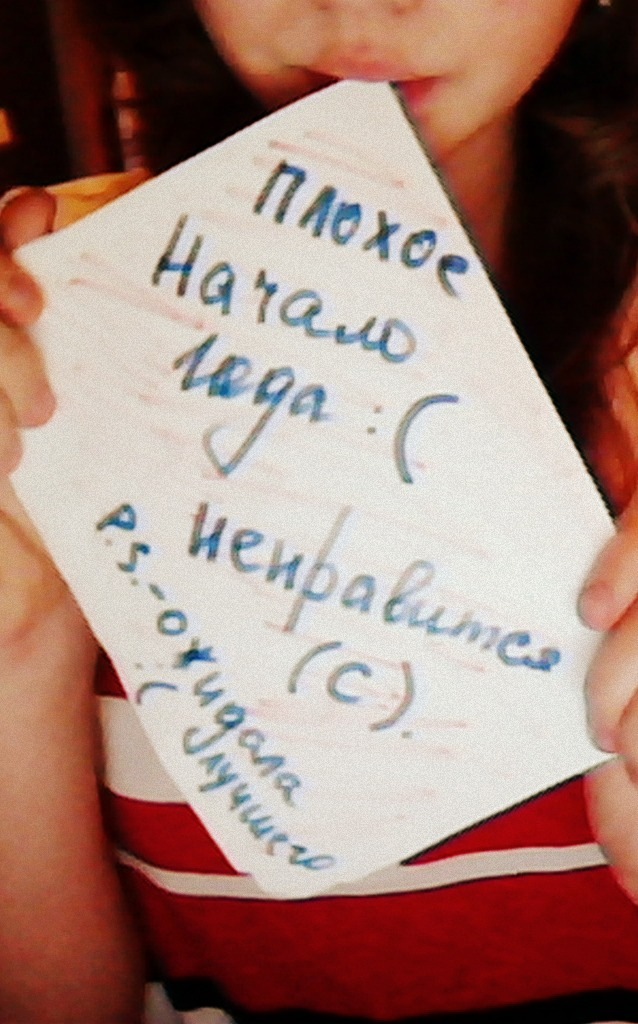 плохое
Начало
года :(
ненравится
(с).
P.S.-ожидала
лучшего
:(